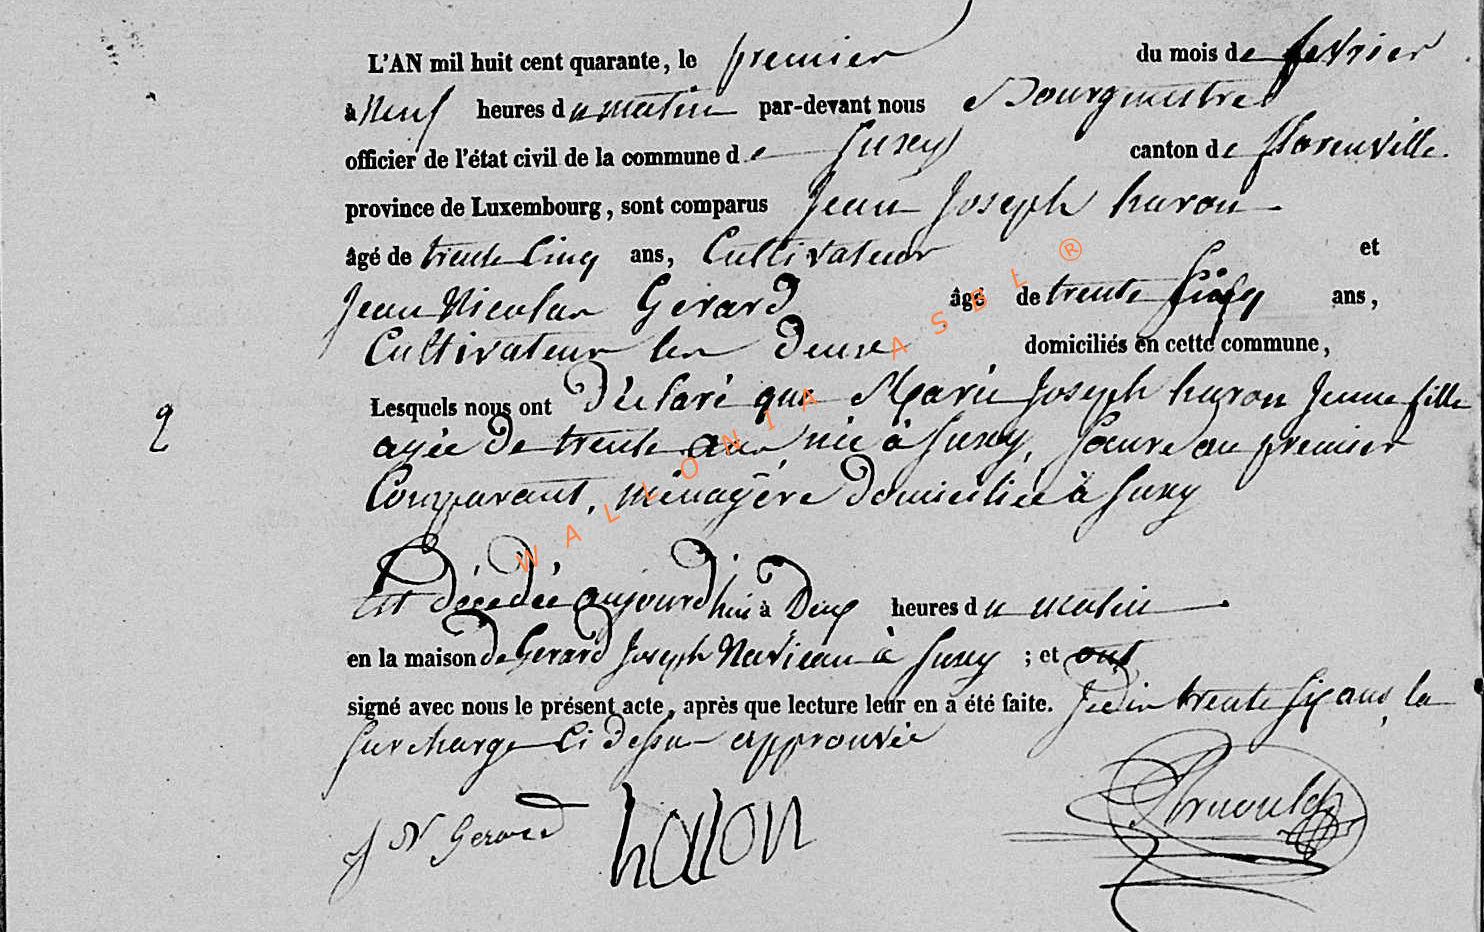 L'AN mil huit cent quarante, le premier du mois de fevrier
à Neuf heures du matin par-devant nous Bourgmestre
officier de l'état civil de la commune de Suxy canton de florenville.
province de Luxembourg, sont comparus Jean Joseph huron
âgé de trente Cinq ans, Cultivateur et
Jean Nicolas Gerard âgé de trente six ans,
Cultivateur les deux domiciliés en cette commune,
Lesquels nous ont déclaré que Marie Joseph huron Jeune fille
2 agée de trente ans née à Suxy, Soeure au premier
Comparant, ménagère domiciliée à Suxy
Est décédée aujourdhui à Deux heures du matin
en la maison de Gerard Joseph Navieau à Suxy ; et ont
signé avec nous le présent acte, après que lecture leur en a été faite. Je dis trente six ans, la
surcharge Ci dessus approuvée
J N Gerard Arnould
WALLONIA ASBL ®